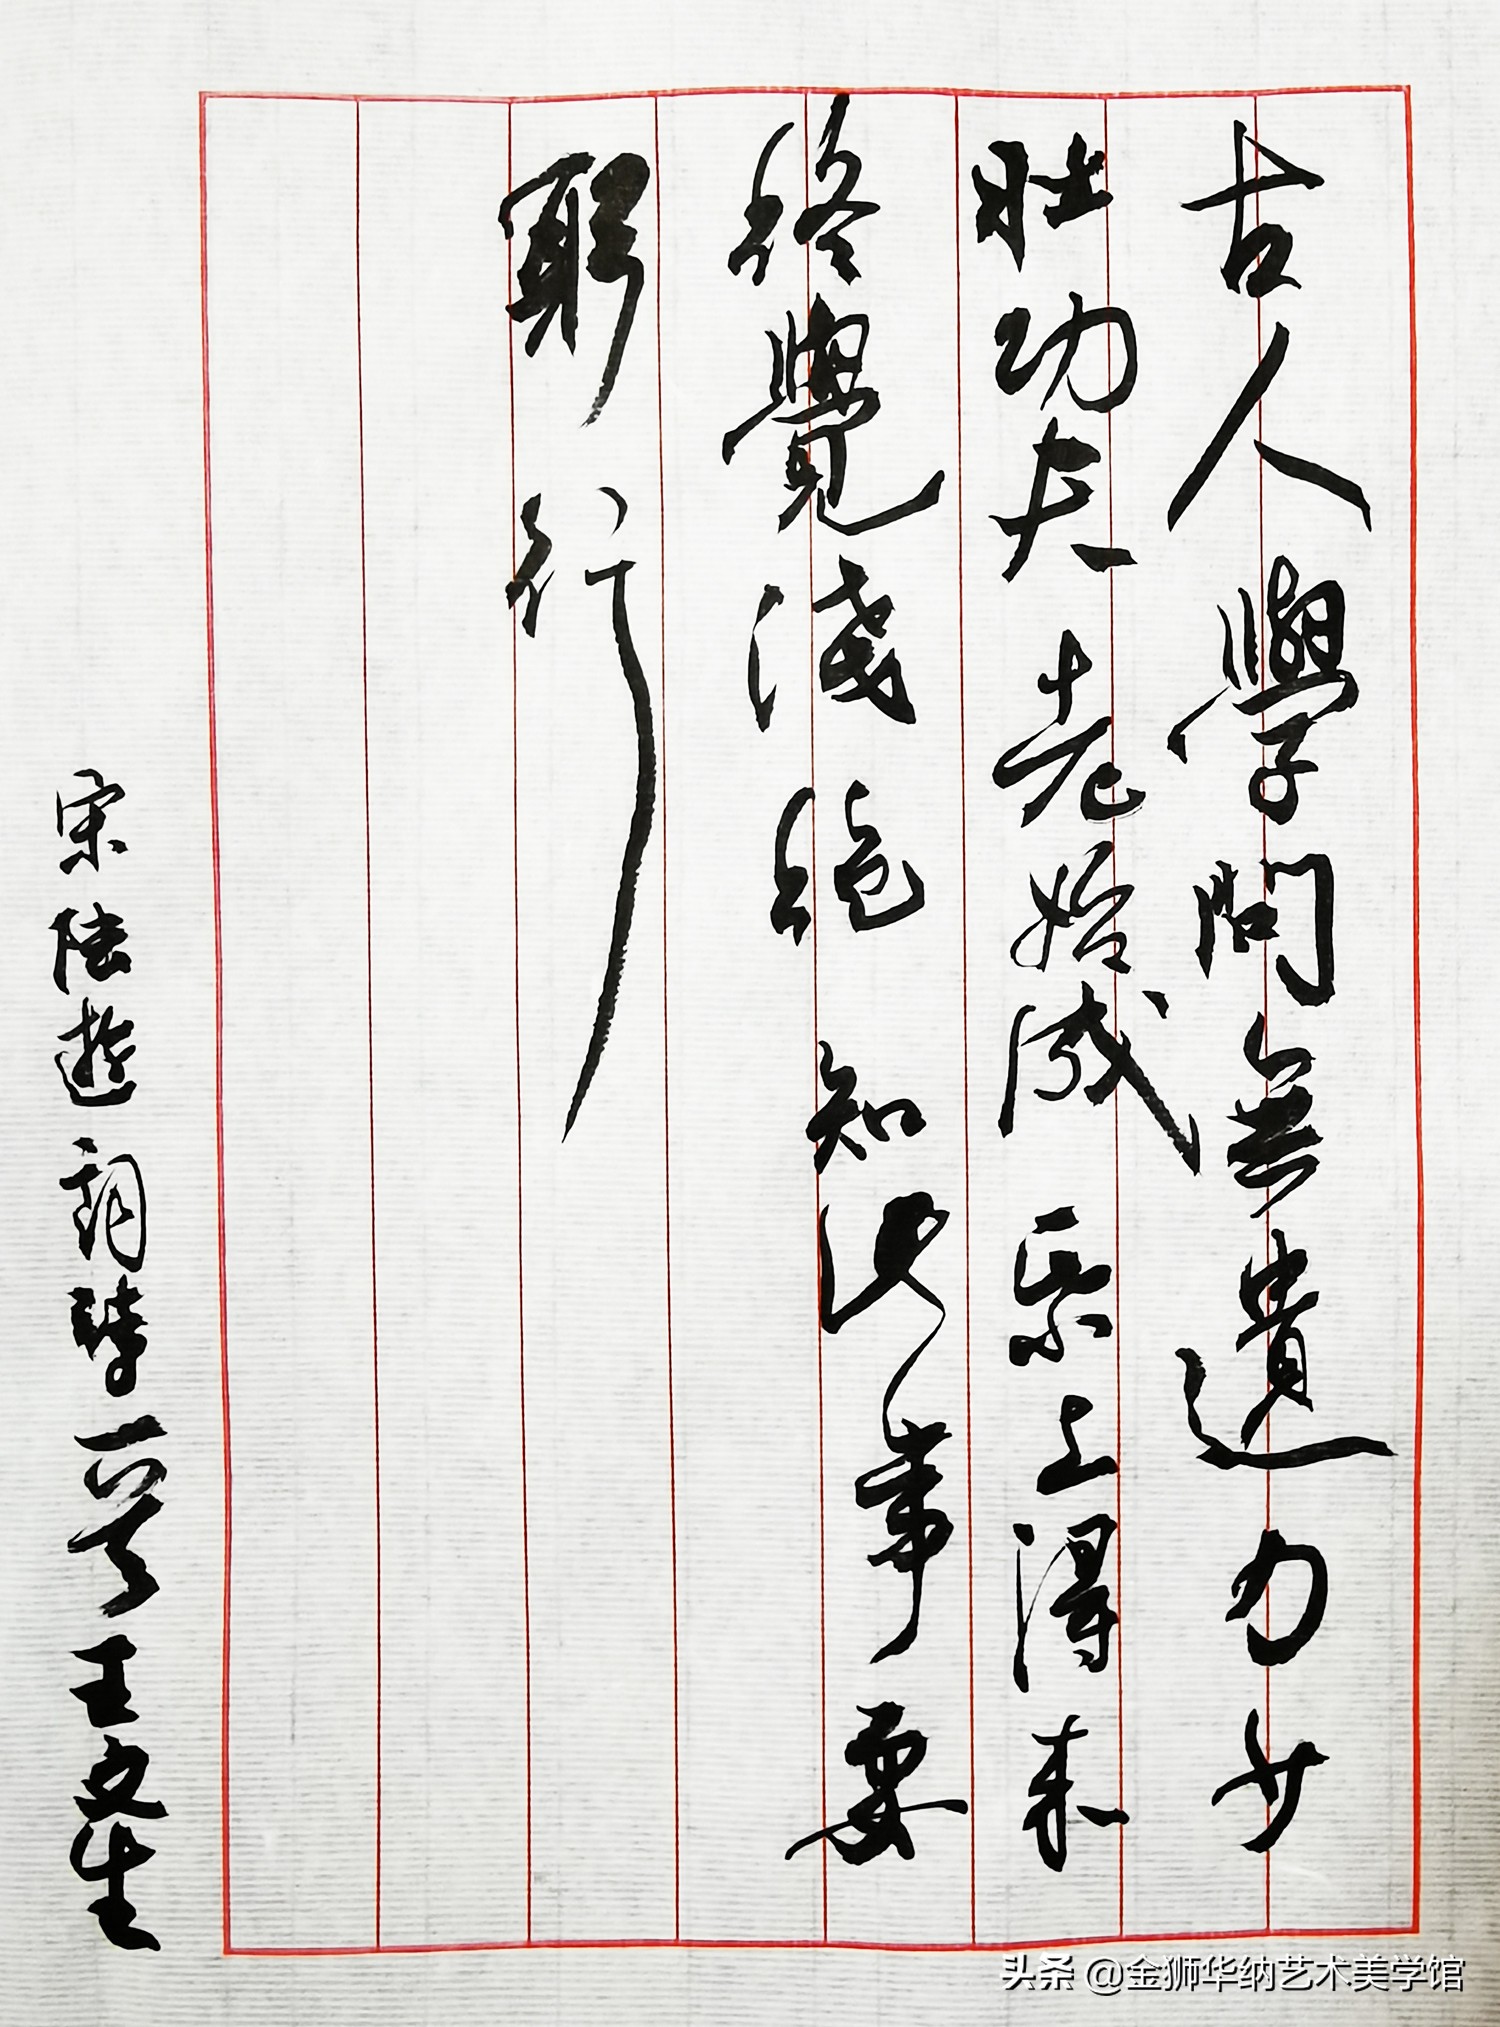 古人學問無遺力少
壯功夫老始成帋上得来
終覺淺絕知此事要
躬行
宋陸遊詞一首王文生
头条 @金狮华纳艺术美学馆